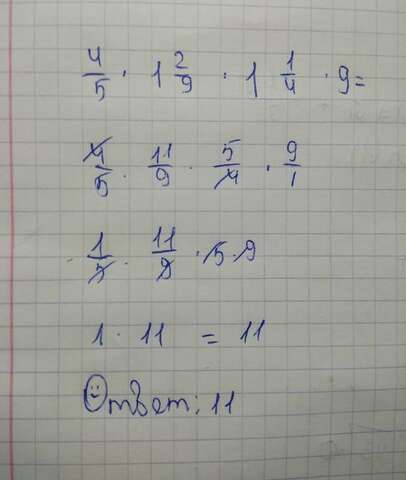 4/5 · 1 2/9 · 1 1/4 · 9 =
4/5 · 11/9 · 5/4 · 9/1
1/5 · 11/9 · 5 · 9
1 · 11 = 11
Ответ: 11